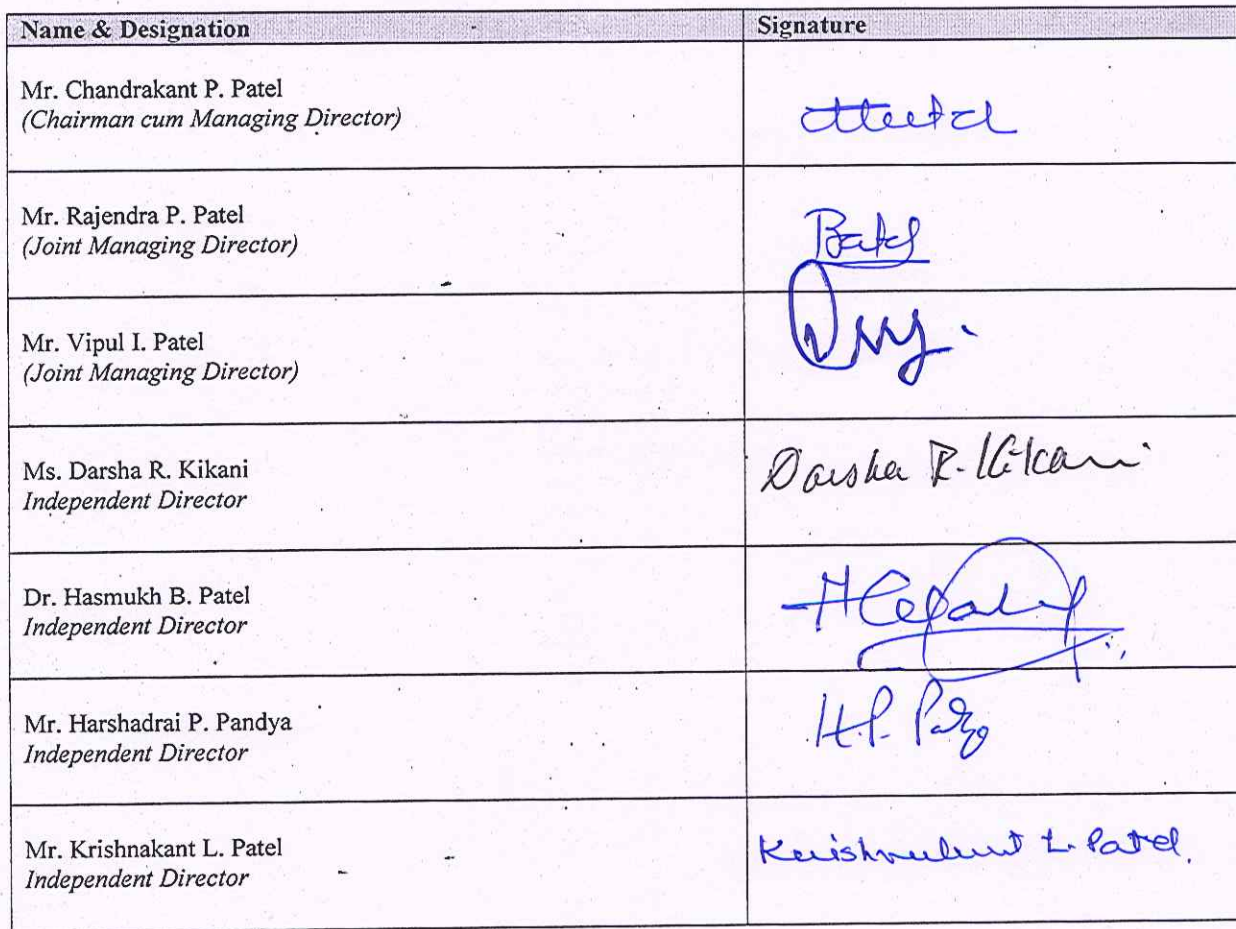 Name & Designation Signature
Mr. Chandrakant P. Patel
(Chairman cum Managing Director)
Mr. Rajendra P. Patel
(Joint Managing Director)
Mr. Vipul I. Patel
(Joint Managing Director)
Ms. Darsha R. Kikani
Independent Director
Darsha R. Kikani
Dr. Hasmukh B. Patel
Independent Director
Mr. Harshadrai P. Pandya
Independent Director
H.P.
Mr. Krishnakant L. Patel
Independent Director
Krishnakant L. Patel.